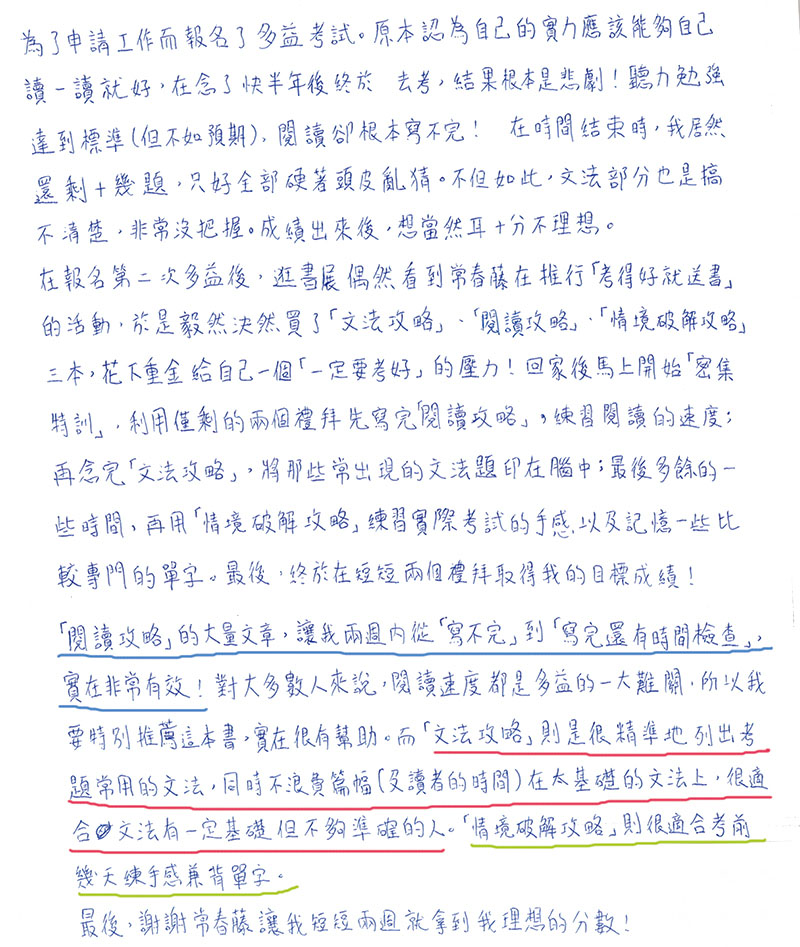 為了申請工作而報名了多益考試。原本認為自己的實力應該能夠自己
讀一讀就好，在念了快半年後終於 去考，結果根本是悲劇！聽力勉強
達到標準(但不如預期)，閱讀卻根本寫不完！ 在時間結束時，我居然
還剩十幾題，只好全部硬著頭皮亂猜。不但如此，文法部分也是搞
不清楚，非常沒把握。成績出來後，想當然耳十分不理想。
在報名第二次多益後，逛書展偶然看到常春藤在推行「考得好就送書」
的活動，於是毅然決然買了「文法攻略」、「閱讀攻略」、「情境破解攻略」
三本，花下重金給自己一個「一定要考好」的壓力！回家後馬上開始「密集
特訓」，利用僅剩的兩個禮拜先寫完「閱讀攻略」，練習閱讀的速度；
再念完「文法攻略」，將那些常出現的文法題印在腦中；最後多餘的一
些時間，再用「情境破解攻略」練習實際考試的手感以及記憶一些比
較專門的單字。最後，終於在短短兩個禮拜取得我的目標成績！
「閱讀攻略」的大量文章，讓我兩週內從「寫不完」到「寫完還有時間檢查」，
實在非常有效！對大多數人來說，閱讀速度都是多益的一大難關，所以我
要特別推薦這本書，實在很有幫助。而「文法攻略」則是很精準地列出考
題常用的文法，同時不浪費篇幅(及讀者的時間)在太基礎的文法上，很適
合文法有一定基礎但不夠準確的人。「情境破解攻略」則很適合考前
幾天練手感兼背單字。
最後，謝謝常春藤讓我短短兩週就拿到我理想的分數！